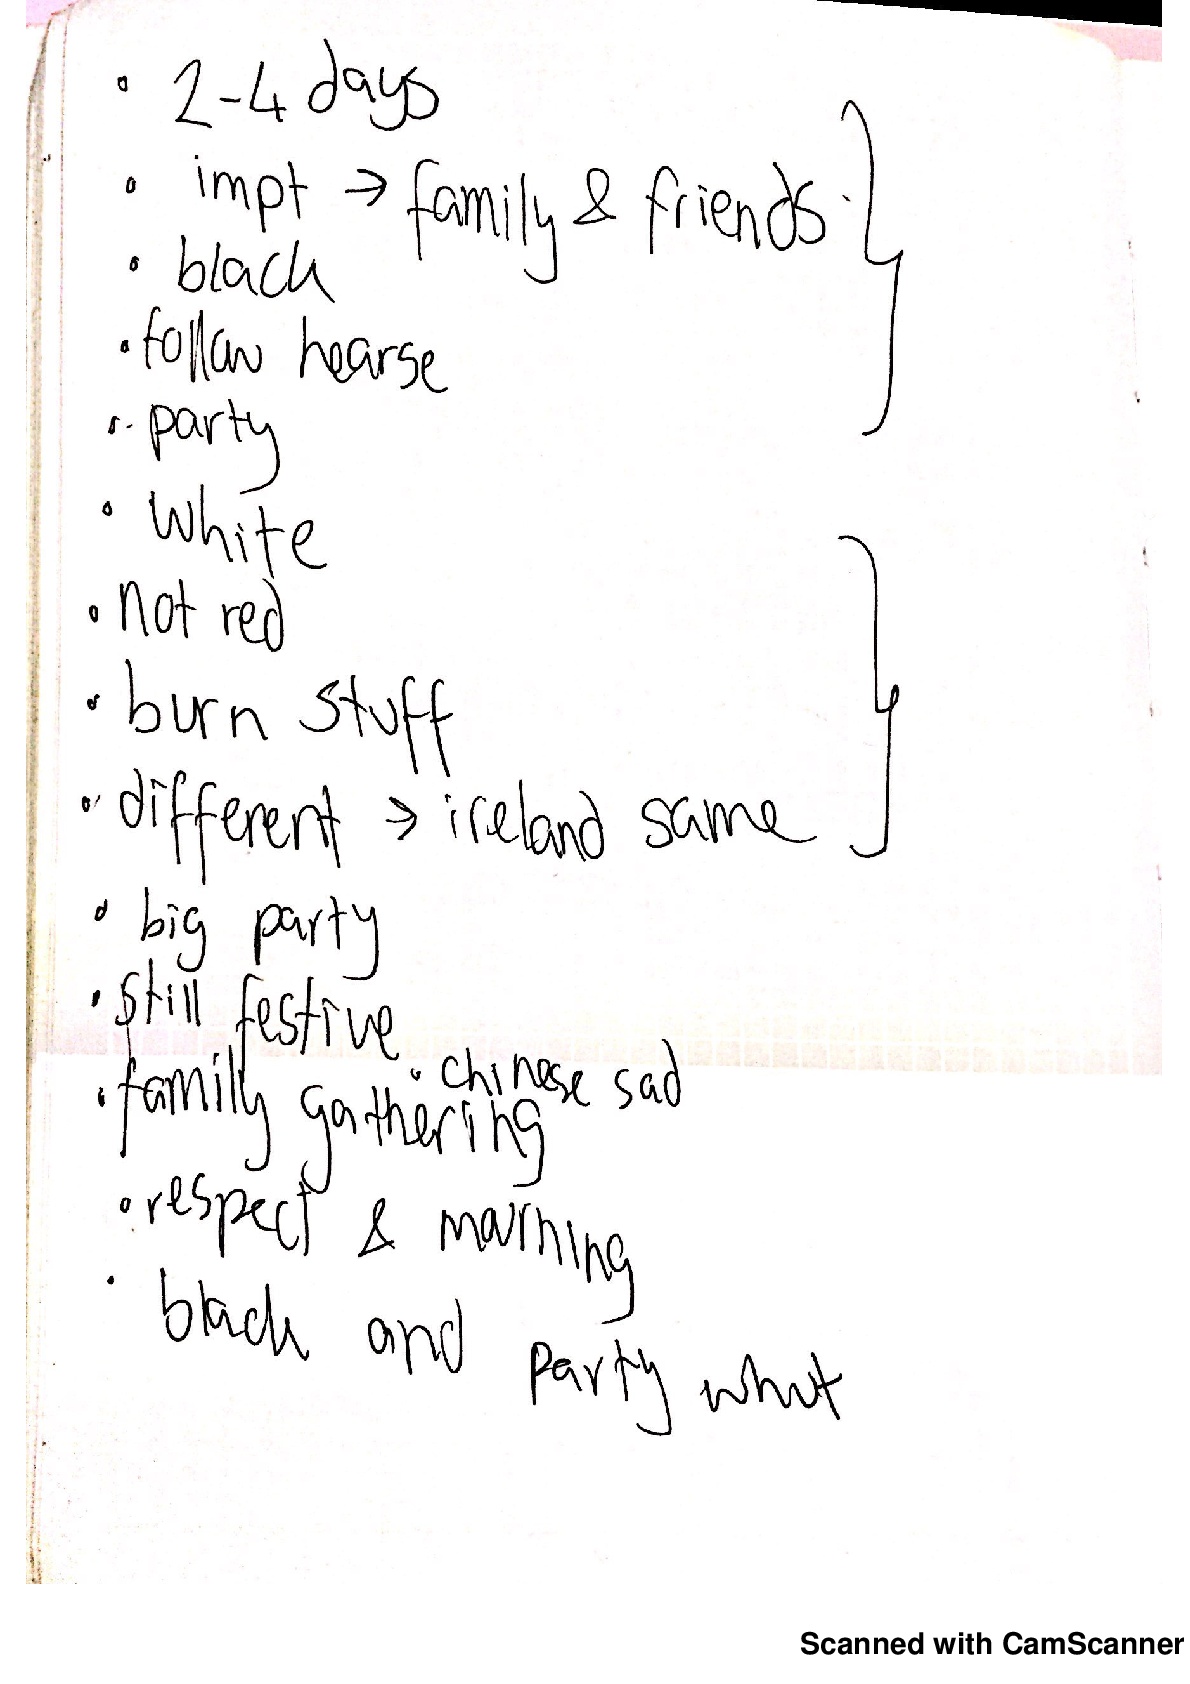 • 2-4 days
• impt → family & friends
• black
• follow hearse
• party
• white
• not red
• burn stuff
• different → ireland same
• big party
• still festive
• chinese sad
• family gathering
• respect & mourning
• black and party whut
Scanned with CamScanner